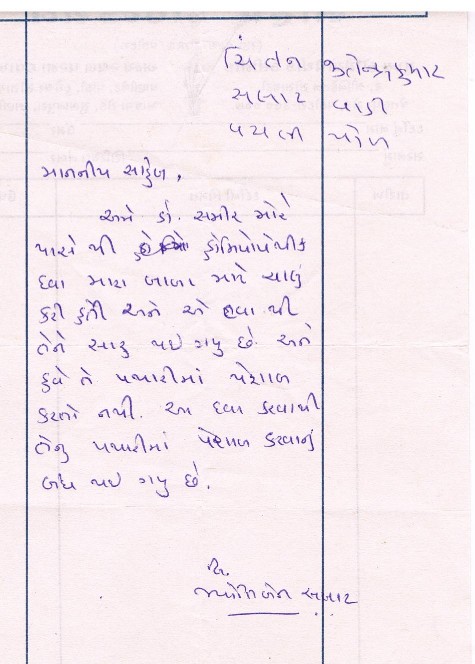 ચિંતન જીતેન્દ્રકુમાર
સલાટ વાડી
વચલી પોળ
માનનીય સાહેબ,
અમે ડૉ. સમીર મોરે
પાસે થી હોમિયોપેથીક
દવા મારા બાબા માટે ચાલુ
કરી હતી અને એ દવા થી
તેને સારુ થઇ ગયુ છે. અને
હવે તે પથારીમાં પેશાબ
કરતો નથી. આ દવા કરવાથી
તેનુ પથારીમાં પેશાબ કરવાનું
બંધ થઇ ગયુ છે.
લિ.
સલાટ